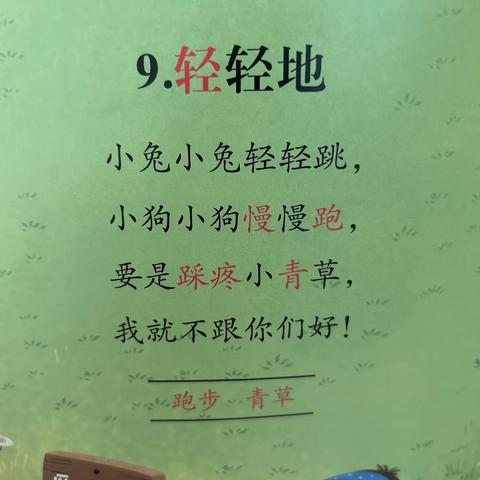 9.轻轻地
小兔小兔轻轻跳，
小狗小狗慢慢跑，
要是踩疼小青草，
我就不跟你们好！
跑步 青草